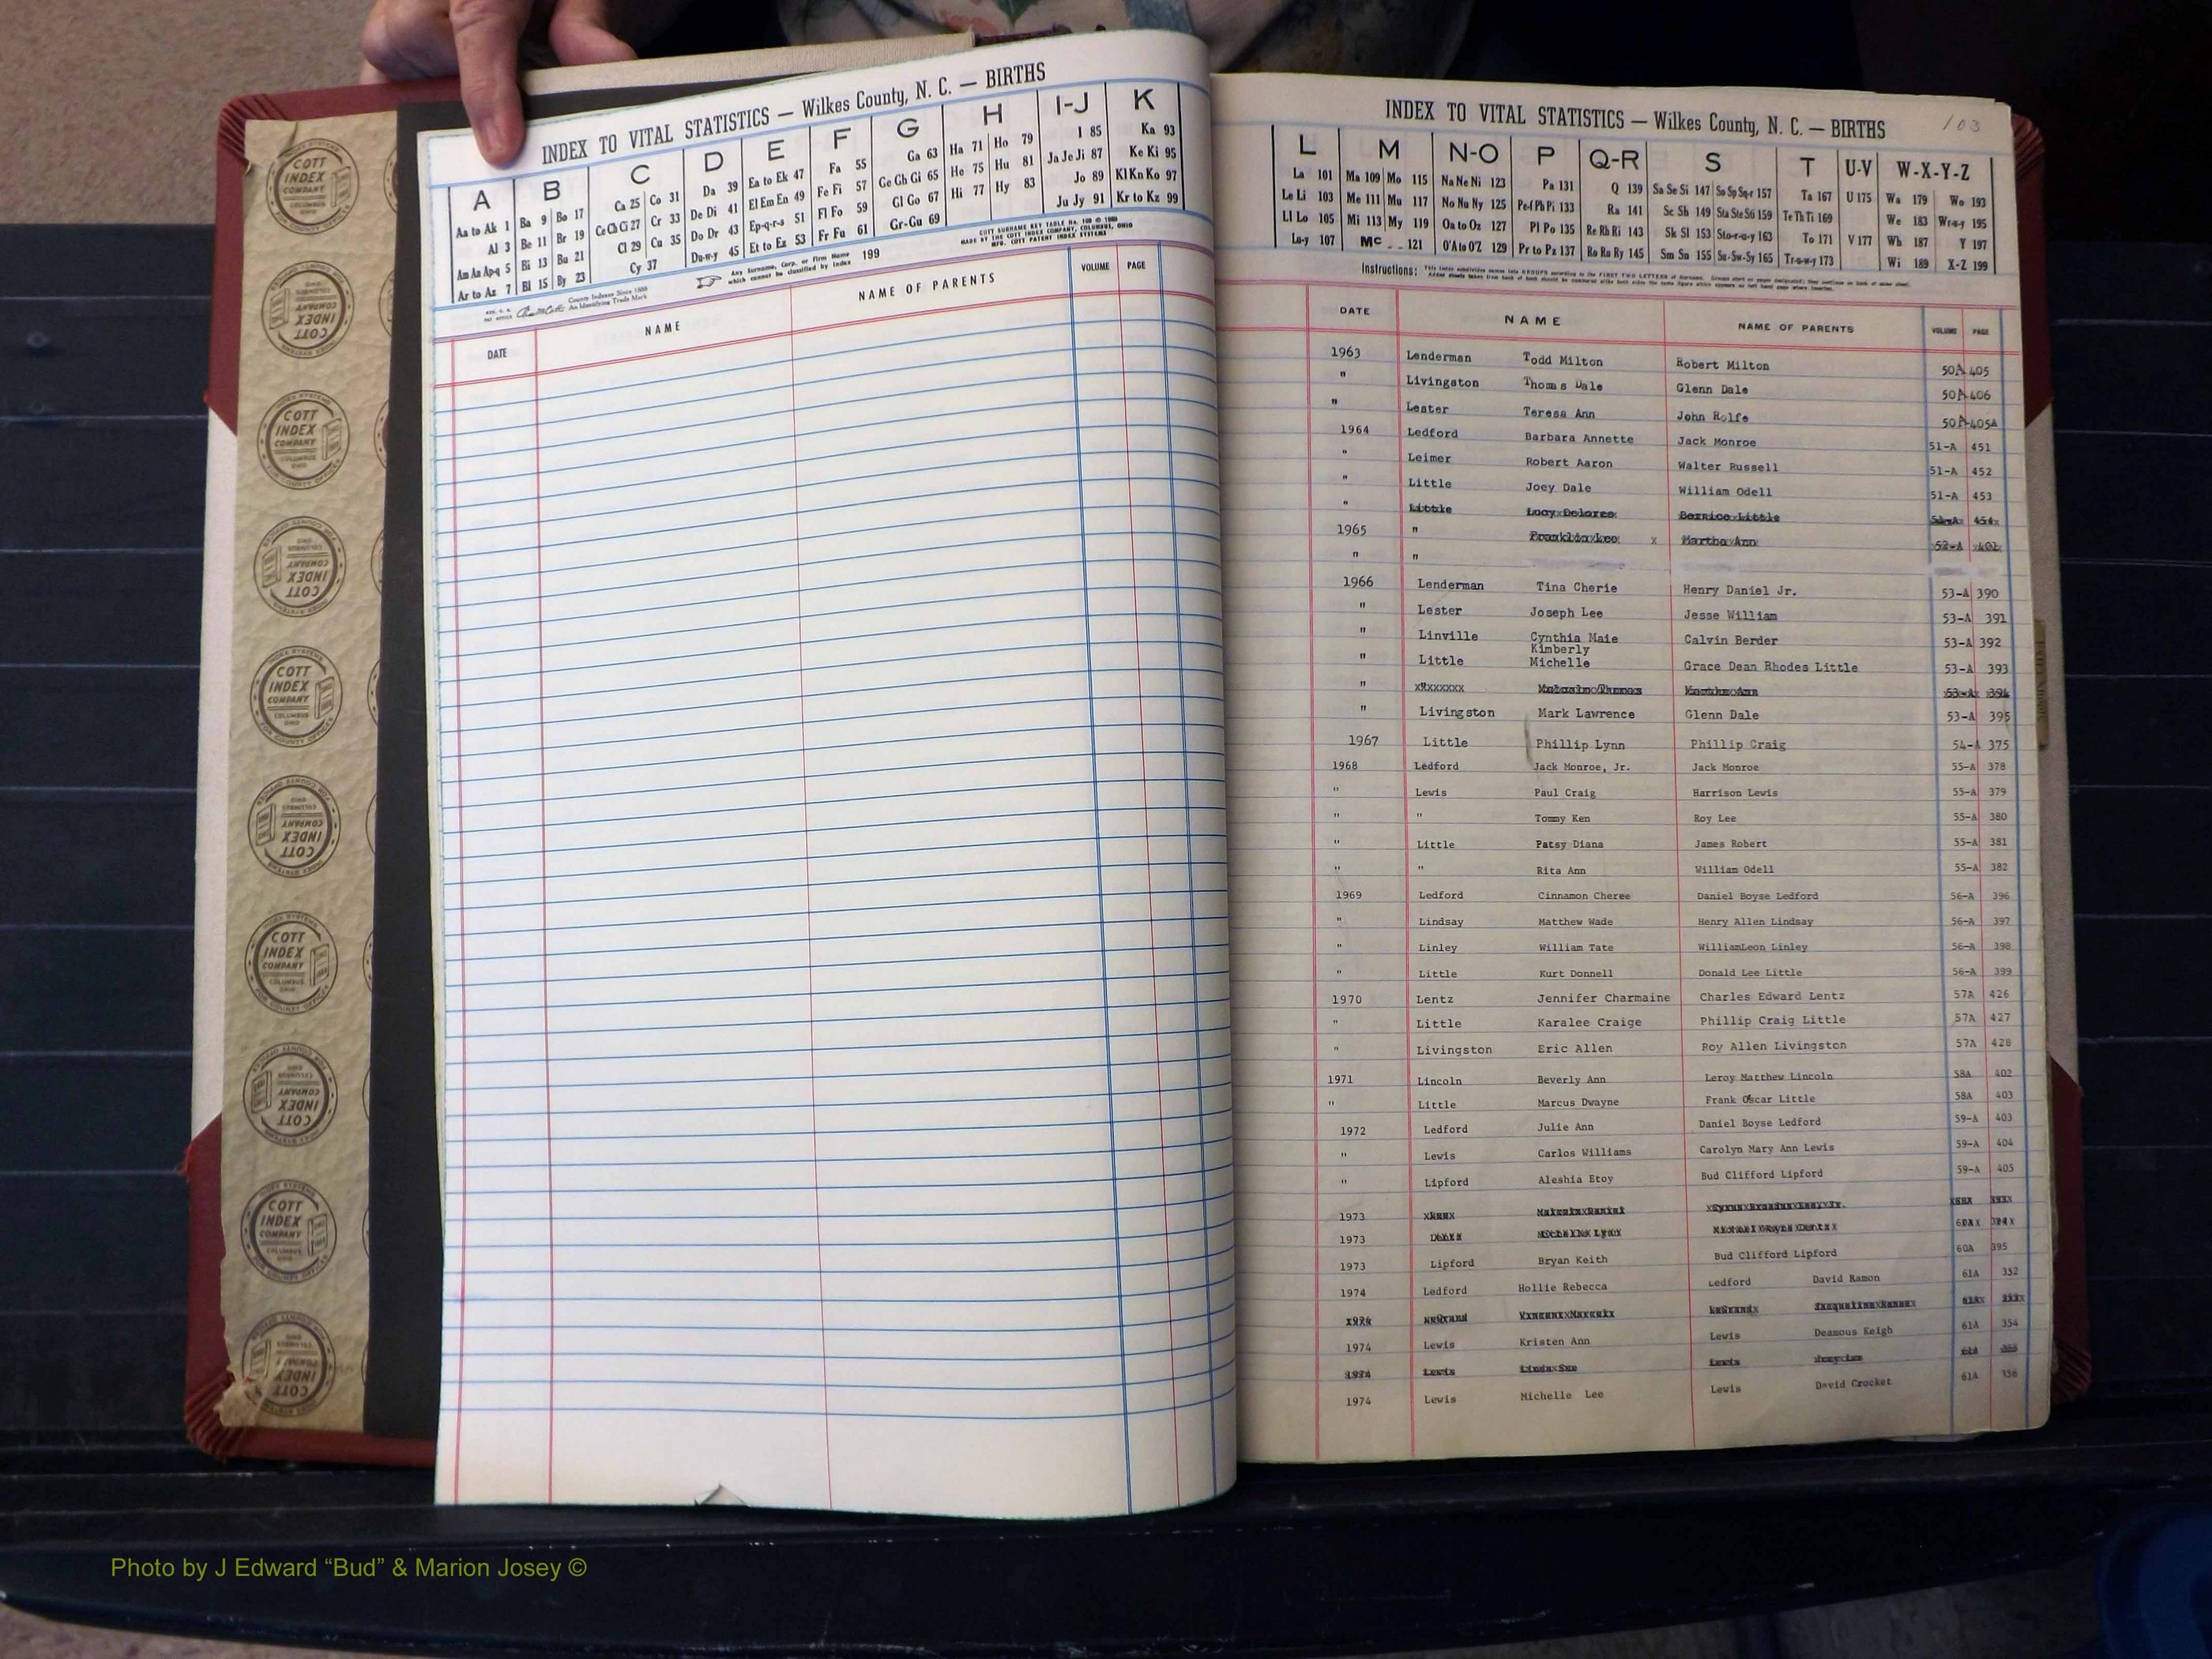 INDEX TO VITAL STATISTICS — Wilkes County, N. C. — BIRTHS
A B C D E F G H I-J K
Aa to Ak 1 Ba 9 Bo 17 Ca 25 Co 31 Da 39 Ea to Ek 47 Fa 55 Ga 63 Ha 71 Ho 79 I 85 Ka 93
Al 3 Be 11 Br 19 Ce Ch Ci 27 Cr 33 De Di 41 El Em En 49 Fe Fi 57 Ge Gh Gi 65 He 75 Hu 81 Ja Je Ji 87 Ke Ki 95
Am An Ap-q 5 Bi 13 Bu 21 Cl 29 Cu 35 Do Dr 43 Ep-q-r-s 51 Fl Fo 59 Gl Go 67 Hi 77 Hy 83 Jo 89 Kl Kn Ko 97
Ar to Az 7 Bl 15 By 23 Cy 37 Du-w-y 45 Et to Ez 53 Fr Fu 61 Gr-Gu 69 Ju Jy 91 Kr to Kz 99
County Indexes Since 1888
An Identifying Trade Mark
Any Surname, Corp. or Firm Name
which cannot be classified by index 199
COTT SURNAME KEY TABLE No. 100 ©
MADE BY THE COTT INDEX COMPANY, COLUMBUS, OHIO
MFG. COTT PATENT INDEX SYSTEMS
DATE NAME NAME OF PARENTS VOLUME PAGE
INDEX TO VITAL STATISTICS — Wilkes County, N. C. — BIRTHS 103
L M N-O P Q-R S T U-V W-X-Y-Z
La 101 Ma 109 Mo 115 Na Ne Ni 123 Pa 131 Q 139 Sa Se Si 147 So Sp Sq-r 157 Ta 167 U 175 Wa 179 Wo 193
Le Li 103 Me 111 Mu 117 No Nu Ny 125 Pe-f Ph Pi 133 Ra 141 Sc Sh 149 Sta Ste Sti 159 Te Th Ti 169 We 183 Wr-u-y 195
Ll Lo 105 Mi 113 My 119 Oa to Oz 127 Pl Po 135 Re Rh Ri 143 Sk Sl 153 Sto-r-u-y 163 To 171 V 177 Wh 187 Y 197
Lu-y 107 Mc 121 O'A to O'Z 129 Pr to Pz 137 Ro Ru Ry 145 Sm Sn 155 Su-Sw-Sy 165 Tr-u-w-y 173 Wi 189 X-Z 199
Instructions:
DATE NAME NAME OF PARENTS VOLUME PAGE
1963 Lenderman Todd Milton Robert Milton 50A 405
" Livingston Thomas Dale Glenn Dale 50A 406
" Lester Teresa Ann John Rolfe 50A 405A
1964 Ledford Barbara Annette Jack Monroe 51-A 451
" Leimer Robert Aaron Walter Russell 51-A 452
" Little Joey Dale William Odell 51-A 453
" Little Lucy Delores Bernice Little 51-A 454
1965 " Franklin Lee Martha Ann 52-A 401
" "
1966 Lenderman Tina Cherie Henry Daniel Jr. 53-A 390
" Lester Joseph Lee Jesse William 53-A 391
" Linville Cynthia Maie Calvin Berder 53-A 392
Kimberly
" Little Michelle Grace Dean Rhodes Little 53-A 393
" 53-A 394
" Livingston Mark Lawrence Glenn Dale 53-A 395
1967 Little Phillip Lynn Phillip Craig 54-A 375
1968 Ledford Jack Monroe, Jr. Jack Monroe 55-A 378
" Lewis Paul Craig Harrison Lewis 55-A 379
" " Tommy Ken Roy Lee 55-A 380
" Little Patsy Diana James Robert 55-A 381
" " Rita Ann William Odell 55-A 382
1969 Ledford Cinnamon Cheree Daniel Boyse Ledford 56-A 396
" Lindsay Matthew Wade Henry Allen Lindsay 56-A 397
" Linley William Tate WilliamLeon Linley 56-A 398
" Little Kurt Donnell Donald Lee Little 56-A 399
1970 Lentz Jennifer Charmaine Charles Edward Lentz 57A 426
" Little Karalee Craige Phillip Craig Little 57A 427
" Livingston Eric Allen Roy Allen Livingston 57A 428
1971 Lincoln Beverly Ann Leroy Matthew Lincoln 58A 402
" Little Marcus Dwayne Frank Oscar Little 58A 403
1972 Ledford Julie Ann Daniel Boyse Ledford 59-A 403
" Lewis Carlos Williams Carolyn Mary Ann Lewis 59-A 404
" Lipford Aleshia Etoy Bud Clifford Lipford 59-A 405
1973
1973
1973 Lipford Bryan Keith Bud Clifford Lipford 60A 395
1974 Ledford Hollie Rebecca Ledford David Ramon 61A 352
1974 Lewis Kristen Ann Lewis Deamous Keigh 61A 354
1974 Lewis Linda Sue Lewis
1974 Lewis Michelle Lee Lewis David Crocket 61A 356
COTT INDEX COMPANY COLUMBUS OHIO
Photo by J Edward “Bud” & Marion Josey ©